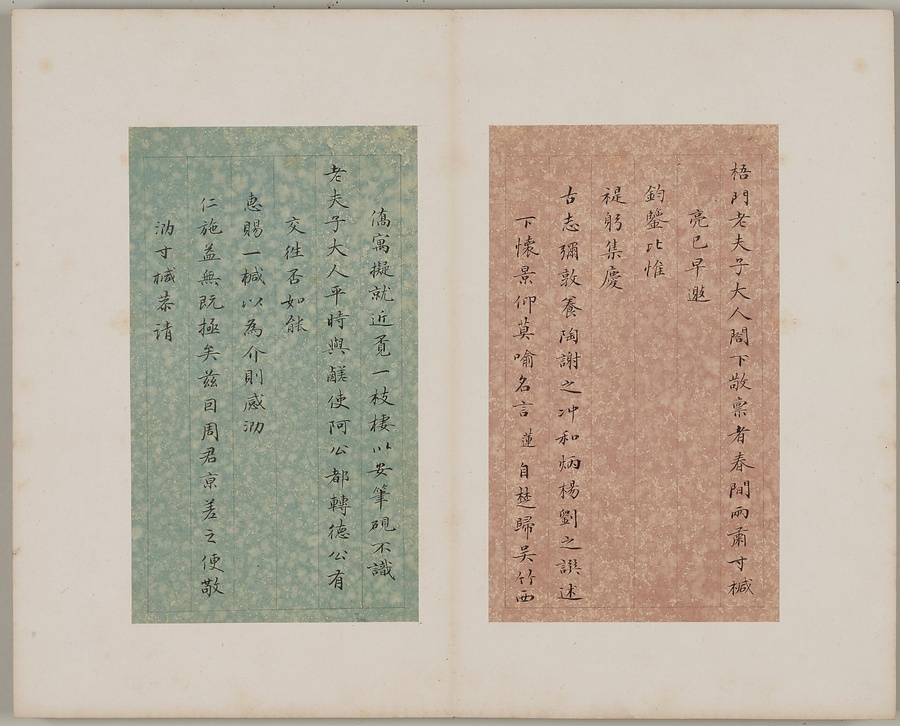 梧門老夫子大人閣下敬稟者春間兩肅寸椷
亮已早邀
鈞鑒比惟
禔躬集慶
古志彌敦養陶謝之冲和炳楊劉之譔述
下懷景仰莫喻名言蓮自楚歸吳竹西
僑寓擬就近覓一枝棲以安筆硯不識
老夫子大人平時與鹺使阿公都轉德公有
交往否如能
惠賜一椷以為介則感泐
仁施益無既極矣茲因周君京差之便敬
泐寸椷恭請